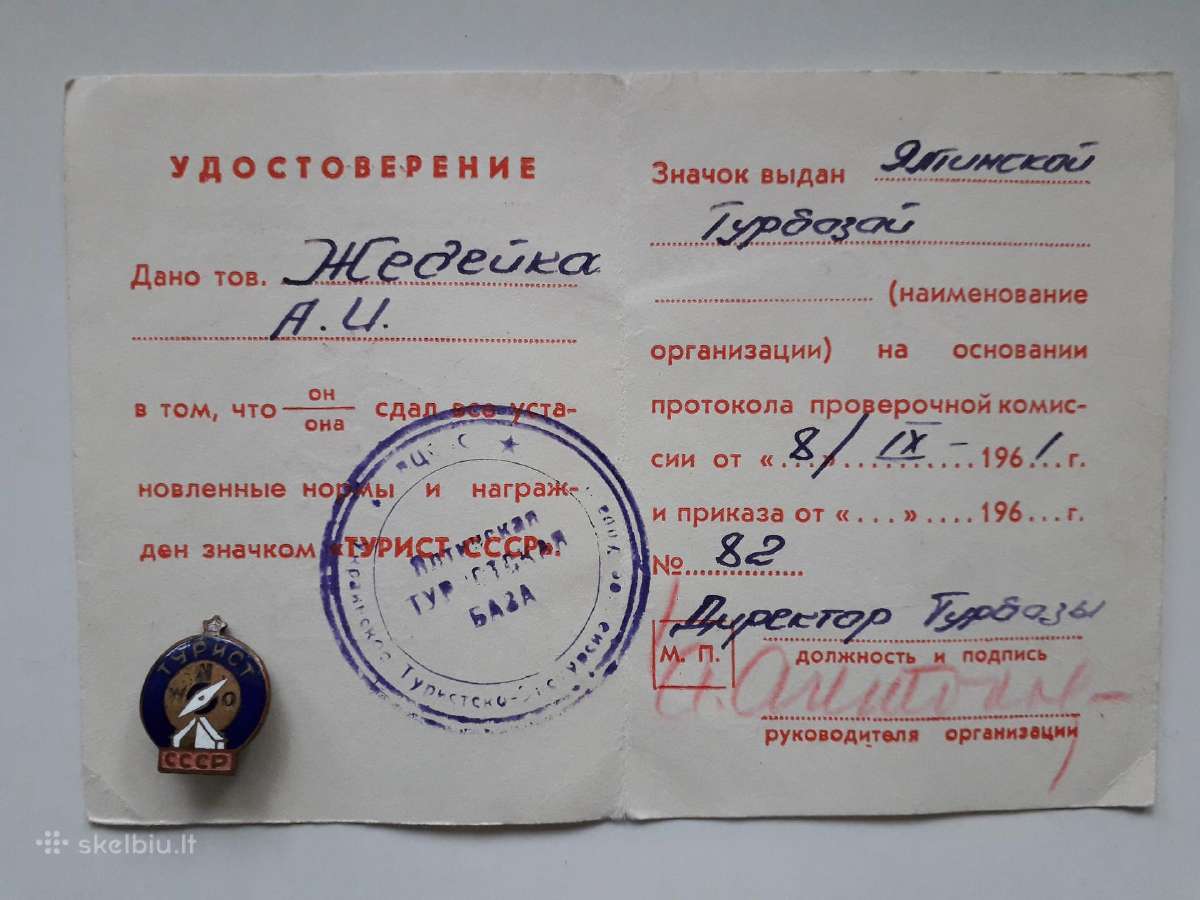 УДОСТОВЕРЕНИЕ
Дано тов. Жедейка
А. И.
в том, что он/она сдал все уста-
новленные нормы и награж-
ден значком «ТУРИСТ СССР».
ВЦСПС
Ялтинская
ТУРИСТСКАЯ
БАЗА
ТУРИСТ
СССР
Значок выдан Ялтинской
Турбазой
(наименование
организации) на основании
протокола проверочной комис-
сии от «8/» IX - 1961 г.
и приказа от «...» .... 196... г.
№ 82
Директор Турбазы
М. П. должность и подпись
руководителя организации
skelbiu.lt